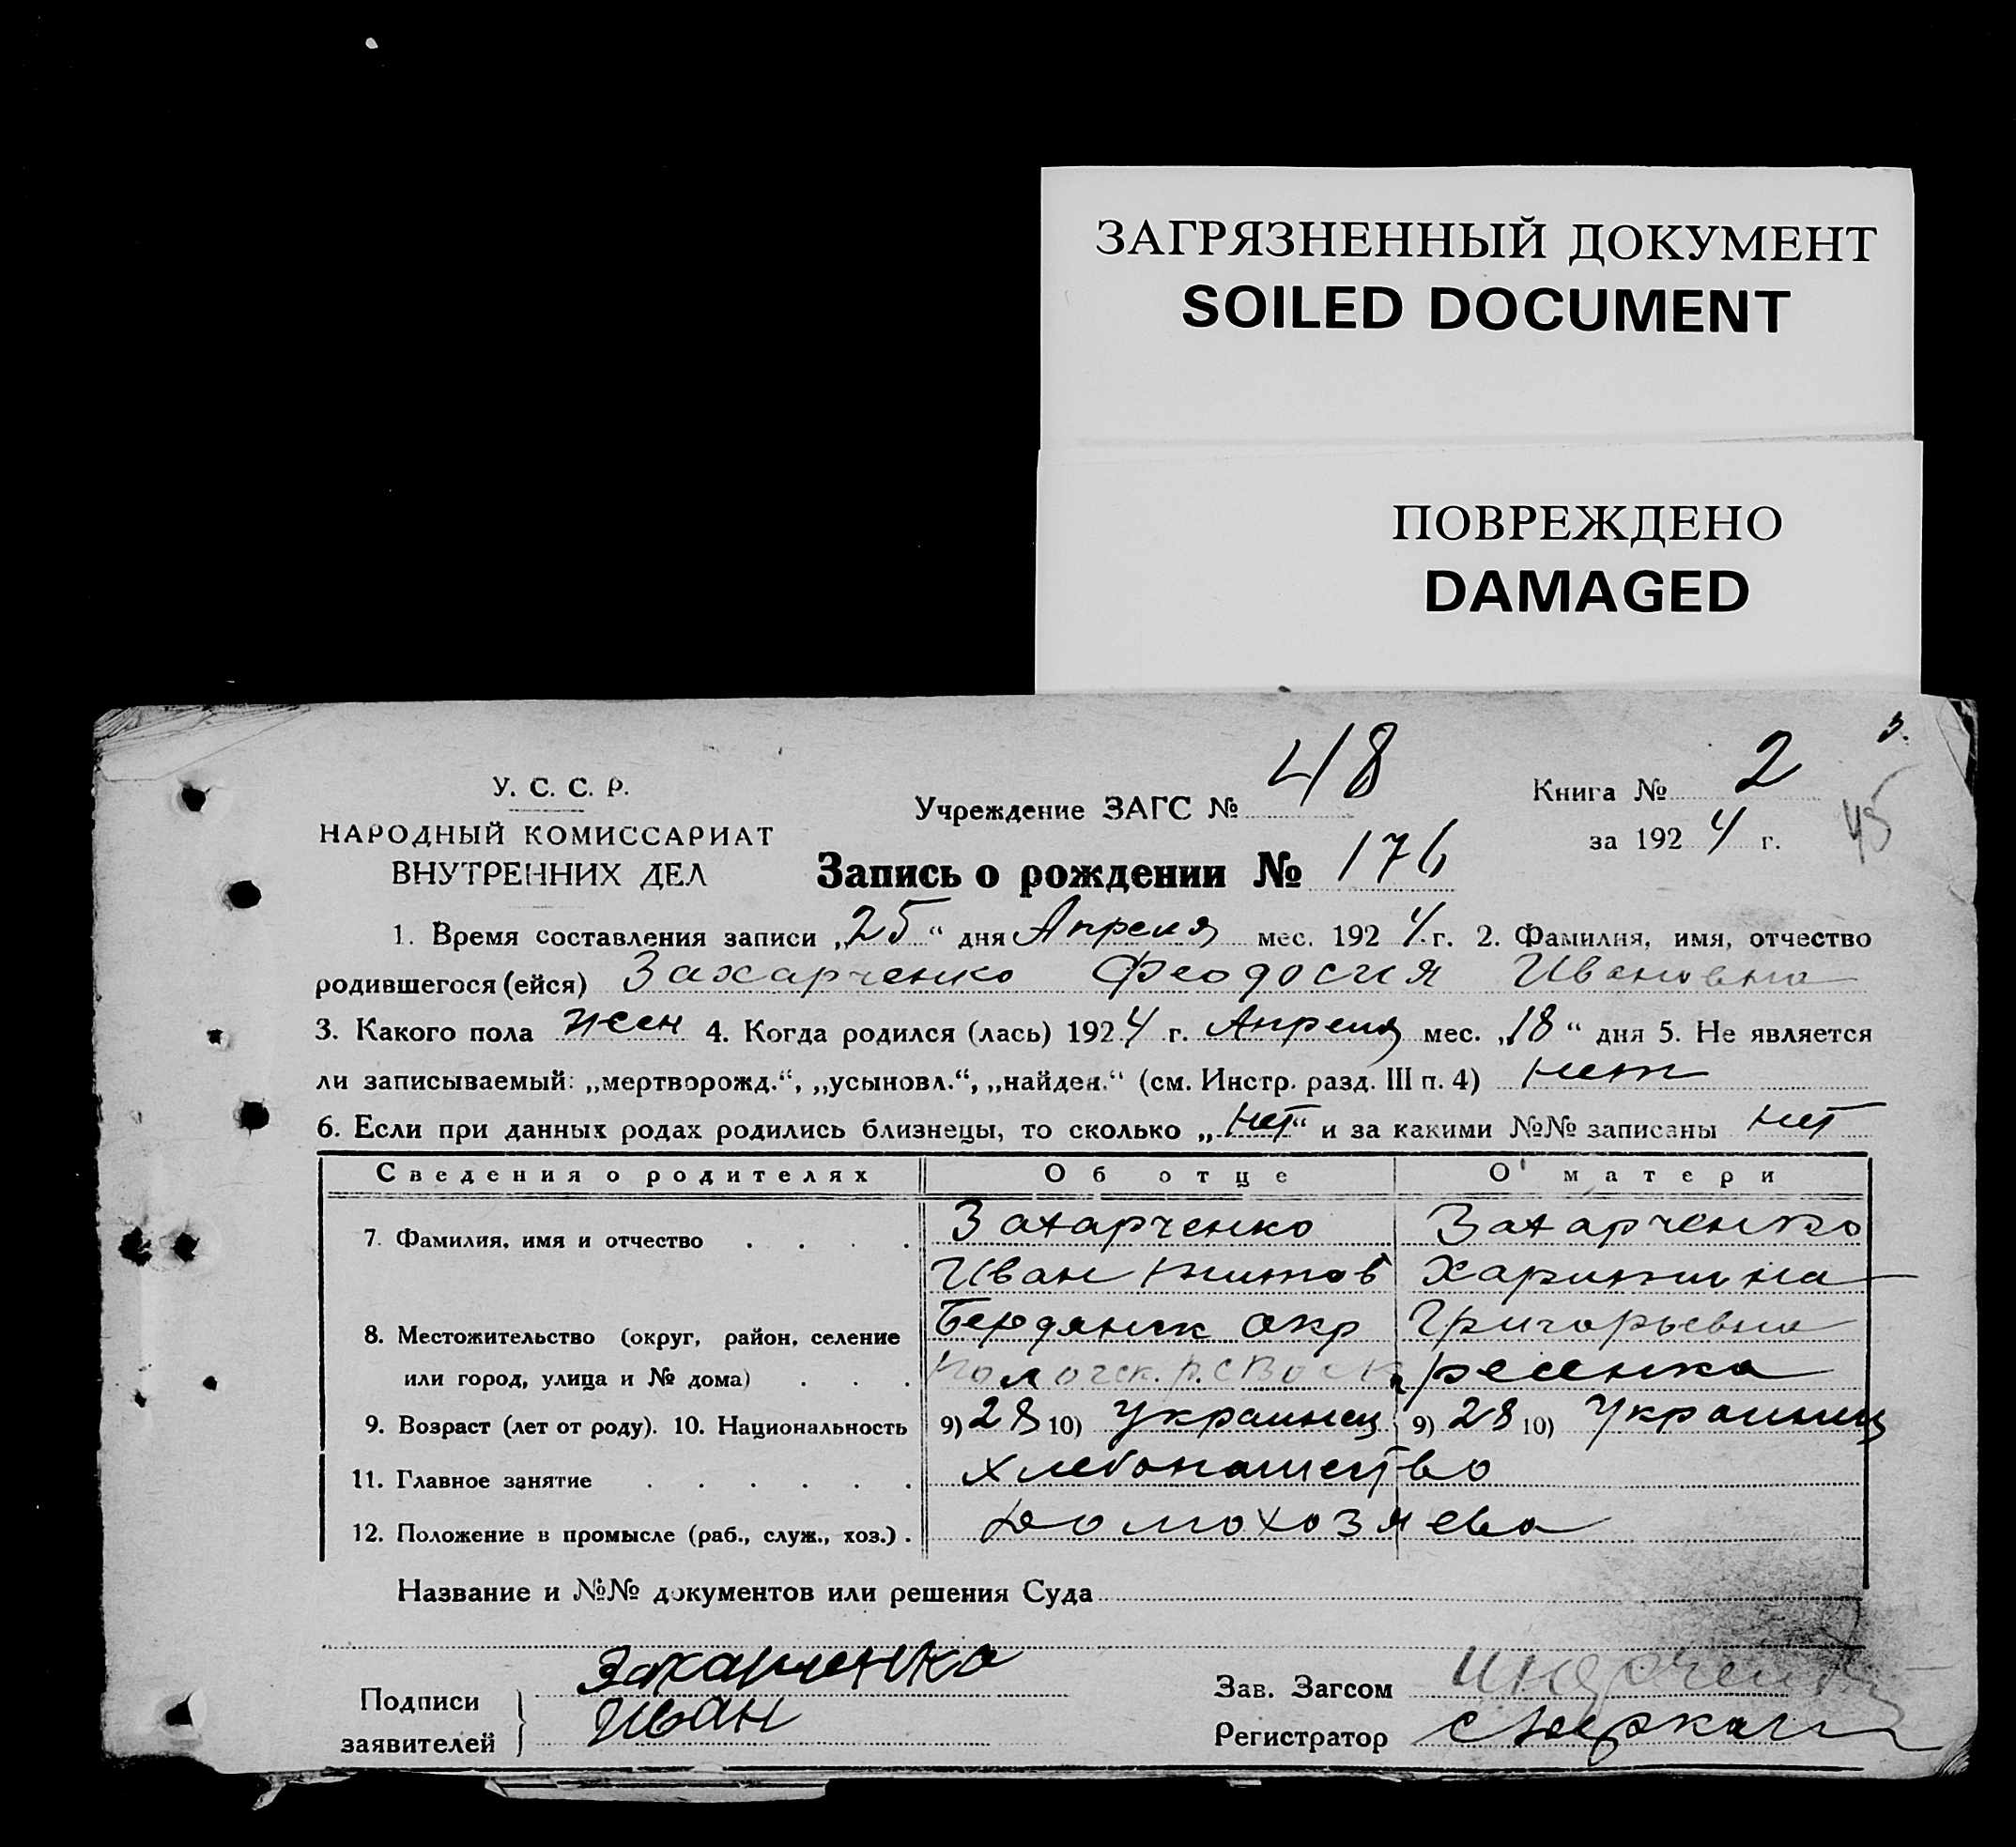 ЗАГРЯЗНЕННЫЙ ДОКУМЕНТ
SOILED DOCUMENT
ПОВРЕЖДЕНО
DAMAGED
У. С. С. Р.
НАРОДНЫЙ КОМИССАРИАТ
ВНУТРЕННИХ ДЕЛ
Учреждение ЗАГС № 48
Книга № 2
за 1924 г.
45
Запись о рождении № 176
1. Время составления записи „25“ дня Апреля мес. 1924 г. 2. Фамилия, имя, отчество
родившегося (ейся) Захарченко Феодосия Ивановна
3. Какого пола жен 4. Когда родился (лась) 1924 г. Апреля мес. „18“ дня 5. Не является
ли записываемый: „мертворожд.“, „усыновл.“, „найден.“ (см. Инстр. разд. III п. 4) нет
6. Если при данных родах родились близнецы, то сколько „нет“ и за какими №№ записаны нет
Сведения о родителях Об отце О матери
7. Фамилия, имя и отчество Захарченко Захарченко
Иван Харитина
8. Местожительство (округ, район, селение Бердянск окр Григорьевна
или город, улица и № дома) ресенка
9. Возраст (лет от роду). 10. Национальность 9) 28 10) Украинец 9) 28 10) Украинец
11. Главное занятие хлебопашество
12. Положение в промысле (раб., служ., хоз.) Домохозяева
Название и №№ документов или решения Суда
Подписи заявителей Захарченко
Иван
Зав. Загсом
Регистратор